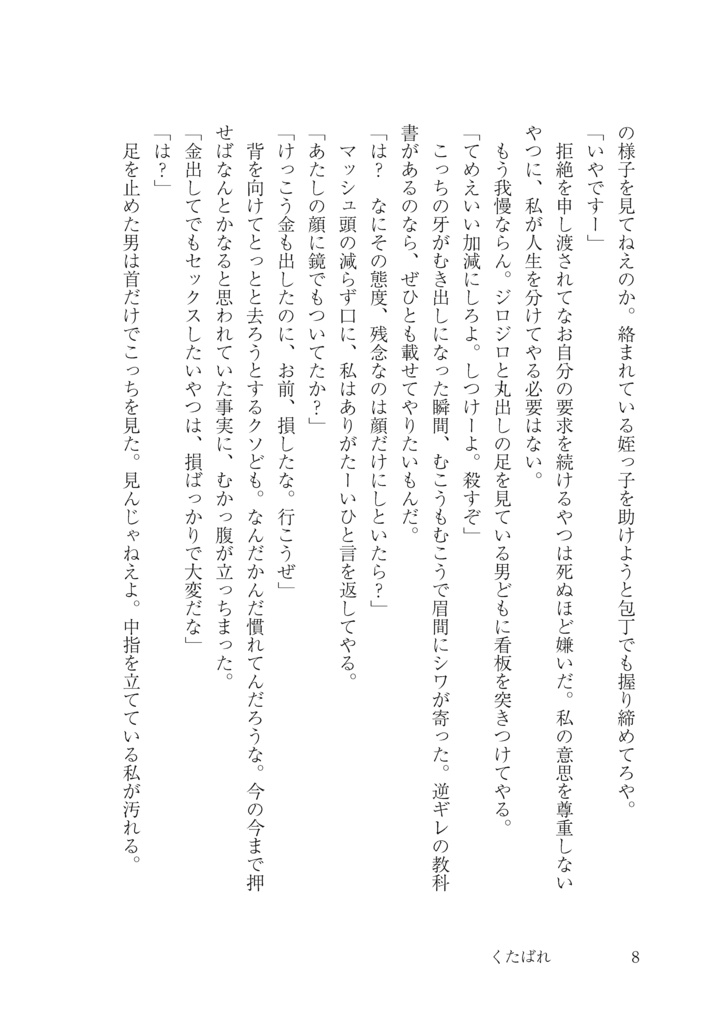 の様子を見てねえのか。絡まれている姪っ子を助けようと包丁でも握り締めてろや。
「いやですー」
　拒絶を申し渡されてなお自分の要求を続けるやつは死ぬほど嫌いだ。私の意思を尊重しない
やつに、私が人生を分けてやる必要はない。
　もう我慢ならん。ジロジロと丸出しの足を見ている男どもに看板を突きつけてやる。
「てめえいい加減にしろよ。しつけーよ。殺すぞ」
　こっちの牙がむき出しになった瞬間、むこうもむこうで眉間にシワが寄った。逆ギレの教科
書があるのなら、ぜひとも載せてやりたいもんだ。
「は？　なにその態度、残念なのは顔だけにしといたら？」
　マッシュ頭の減らず口に、私はありがたーいひと言を返してやる。
「あたしの顔に鏡でもついてたか？」
「けっこう金も出したのに、お前、損したな。行こうぜ」
　背を向けてとっとと去ろうとするクソども。なんだかんだ慣れてんだろうな。今の今まで押
せばなんとかなると思われていた事実に、むかっ腹が立っちまった。
「金出してでもセックスしたいやつは、損ばっかりで大変だな」
「は？」
　足を止めた男は首だけでこっちを見た。見んじゃねえよ。中指を立てている私が汚れる。
くたばれ
8